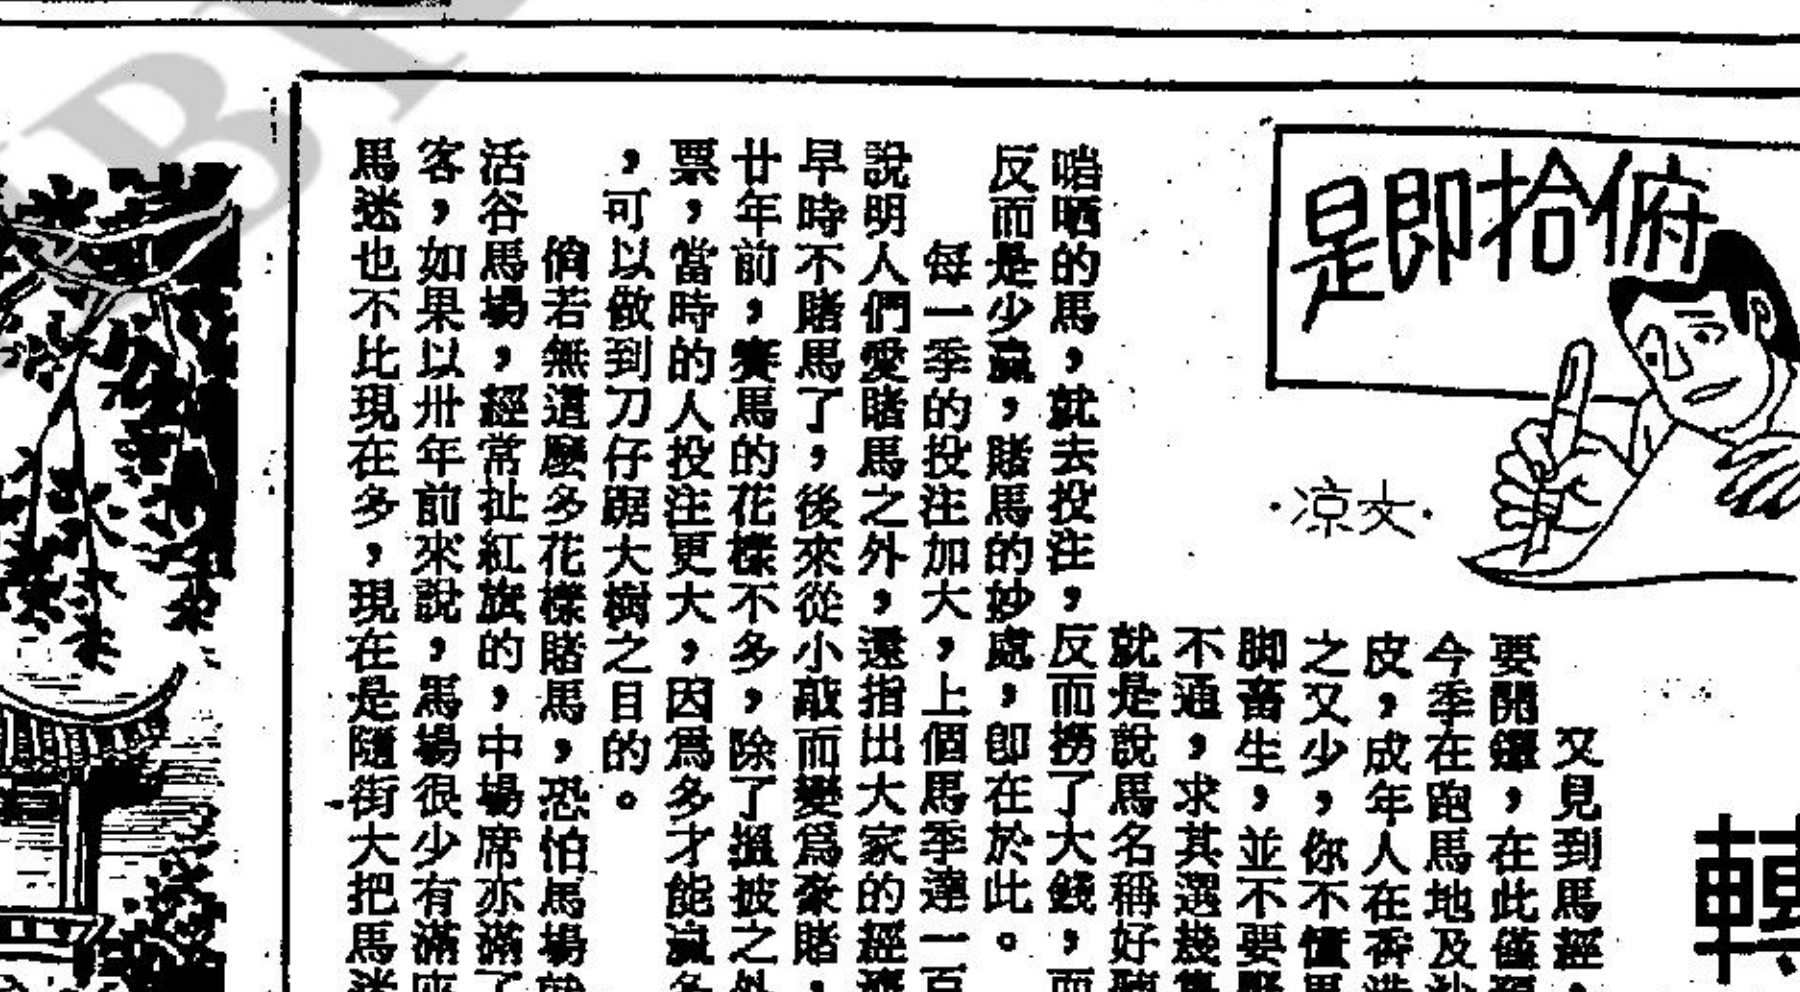 俯拾即是
·凉文·
轉
又見到馬經，
要開鑼，在此僅
今季在跑馬地及
皮，成年人在香港
之又少，你不懂馬
脚畜生，並不要
不通，求其選幾
就是說馬名稱好聽
啱晒的馬，就去投注，反而撈了大錢，而
反而是少贏，賭馬的妙處，卽在於此。
每一季的投注加大，上個馬季達一百
說明人們愛賭馬之外，還指出大家的經濟
早時不賭馬了，後來從小敲而變爲豪賭，
廿年前，賽馬的花樣不多，除了搵披之外
票，當時的人投注更大，因爲多才能贏多
，可以做到刀仔踞大樹之目的。
倘若無這麼多花樣賭馬，恐怕馬場
活谷馬場，經常扯紅旗的，中場席亦滿了
客，如果以卅年前來說，馬場很少有滿座
馬迷也不比現在多，現在是隨街大把馬迷